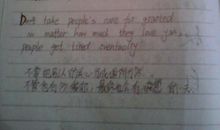 Don't take people's care for granted
no matter how much they love you,
people get tired eventually
不要把别人的关心当成理所当然
不管他有多爱你，最终也会有疲惫的一天